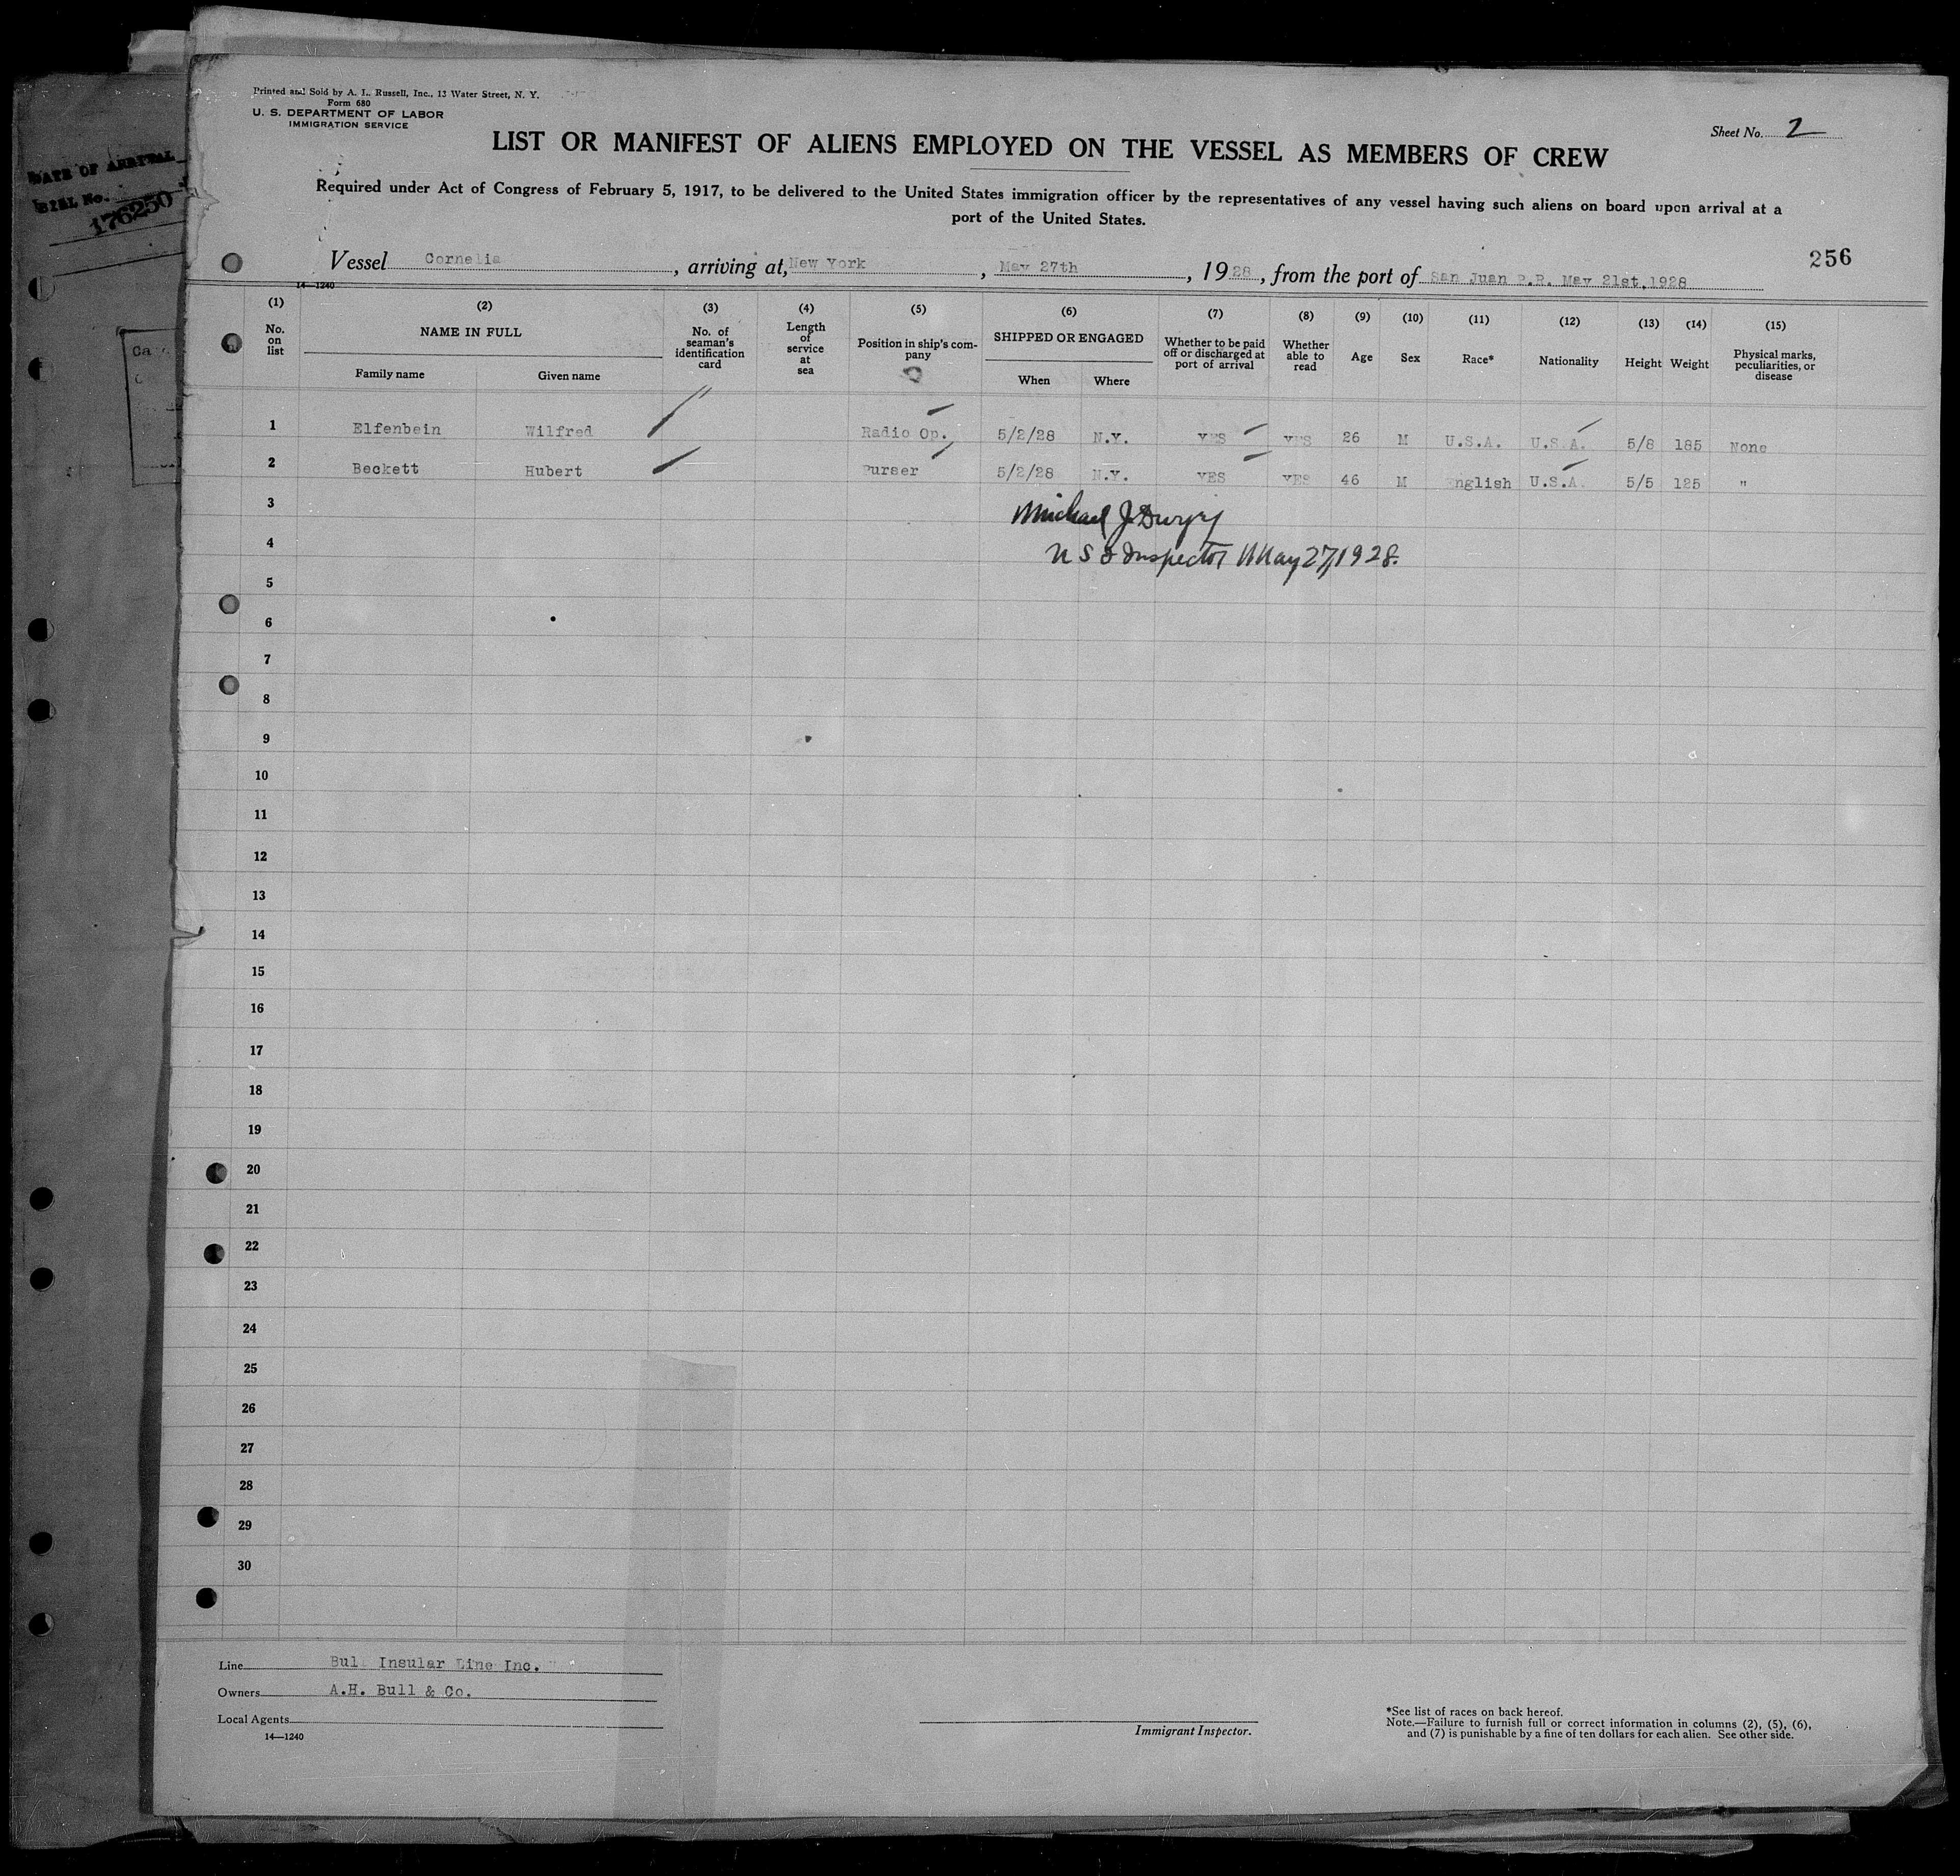 DATE OF ARRIVAL
176250
Printed and Sold by A. L. Russell, Inc., 13 Water Street, N. Y.
Form 680
U. S. DEPARTMENT OF LABOR
IMMIGRATION SERVICE
Sheet No. 2
LIST OR MANIFEST OF ALIENS EMPLOYED ON THE VESSEL AS MEMBERS OF CREW
Required under Act of Congress of February 5, 1917, to be delivered to the United States immigration officer by the representatives of any vessel having such aliens on board upon arrival at a
port of the United States.
256
Vessel Cornelia, arriving at, New York, May 27th, 1928, from the port of San Juan P.R. May 21st, 1928
14—1240
(1) (2) (3) (4) (5) (6) (7) (8) (9) (10) (11) (12) (13) (14) (15)
No. on list
NAME IN FULL
Family name Given name
No. of seaman's identification card
Length of service at sea
Position in ship's company
SHIPPED OR ENGAGED
When Where
Whether to be paid off or discharged at port of arrival
Whether able to read
Age Sex Race* Nationality Height Weight
Physical marks, peculiarities, or disease
1 Elfenbein Wilfred Radio Op. 5/2/28 N.Y. YES YES 26 M U.S.A. U.S.A. 5/8 185 None
2 Beckett Hubert Purser 5/2/28 N.Y. YES YES 46 M English U.S.A. 5/5 125 "
3
Michael J.
4
Inspector May 27, 1928.
5
6
7
8
9
10
11
12
13
14
15
16
17
18
19
20
21
22
23
24
25
26
27
28
29
30
Line Bull Insular Line Inc.
Owners A.H. Bull & Co.
Local Agents
14—1240
Immigrant Inspector.
*See list of races on back hereof.
Note.—Failure to furnish full or correct information in columns (2), (5), (6),
and (7) is punishable by a fine of ten dollars for each alien. See other side.